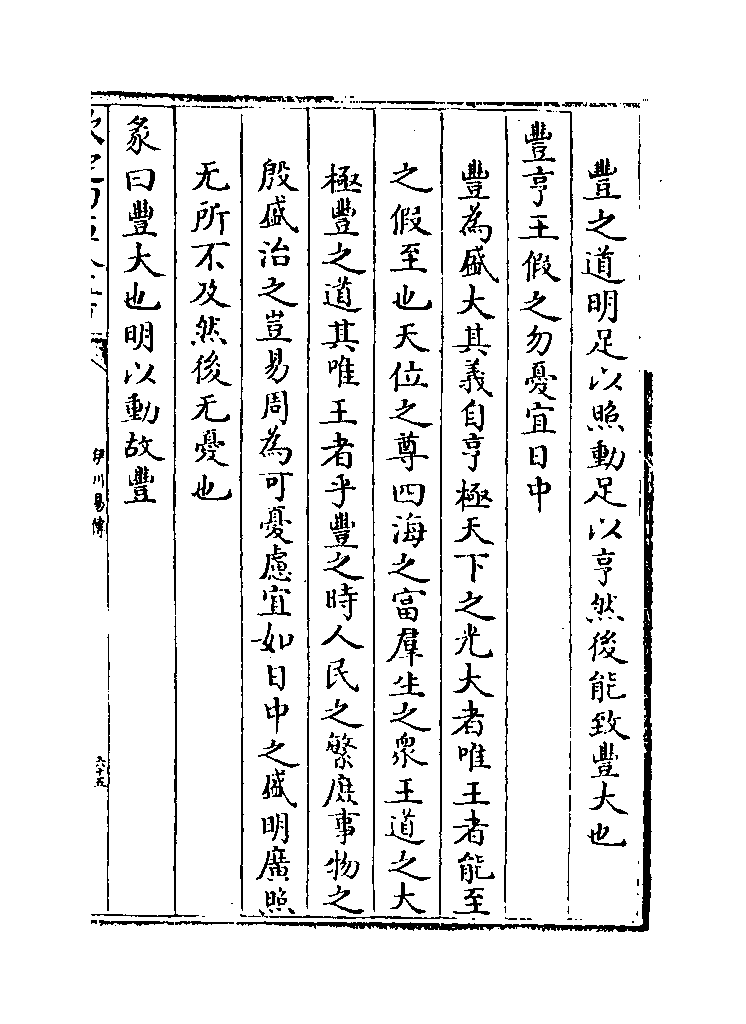 豐之道明足以照動足以亨然後能致豐大也
豐亨王假之勿憂宜日中
豐為盛大其義自亨極天下之光大者唯王者能至
之假至也天位之尊四海之富羣生之衆王道之大
極豐之道其唯王者乎豐之時人民之繁庶事物之
殷盛治之豈易周為可憂慮宜如日中之盛明廣照
无所不及然後无憂也
彖曰豐大也明以動故豐
伊川易傳
六十五